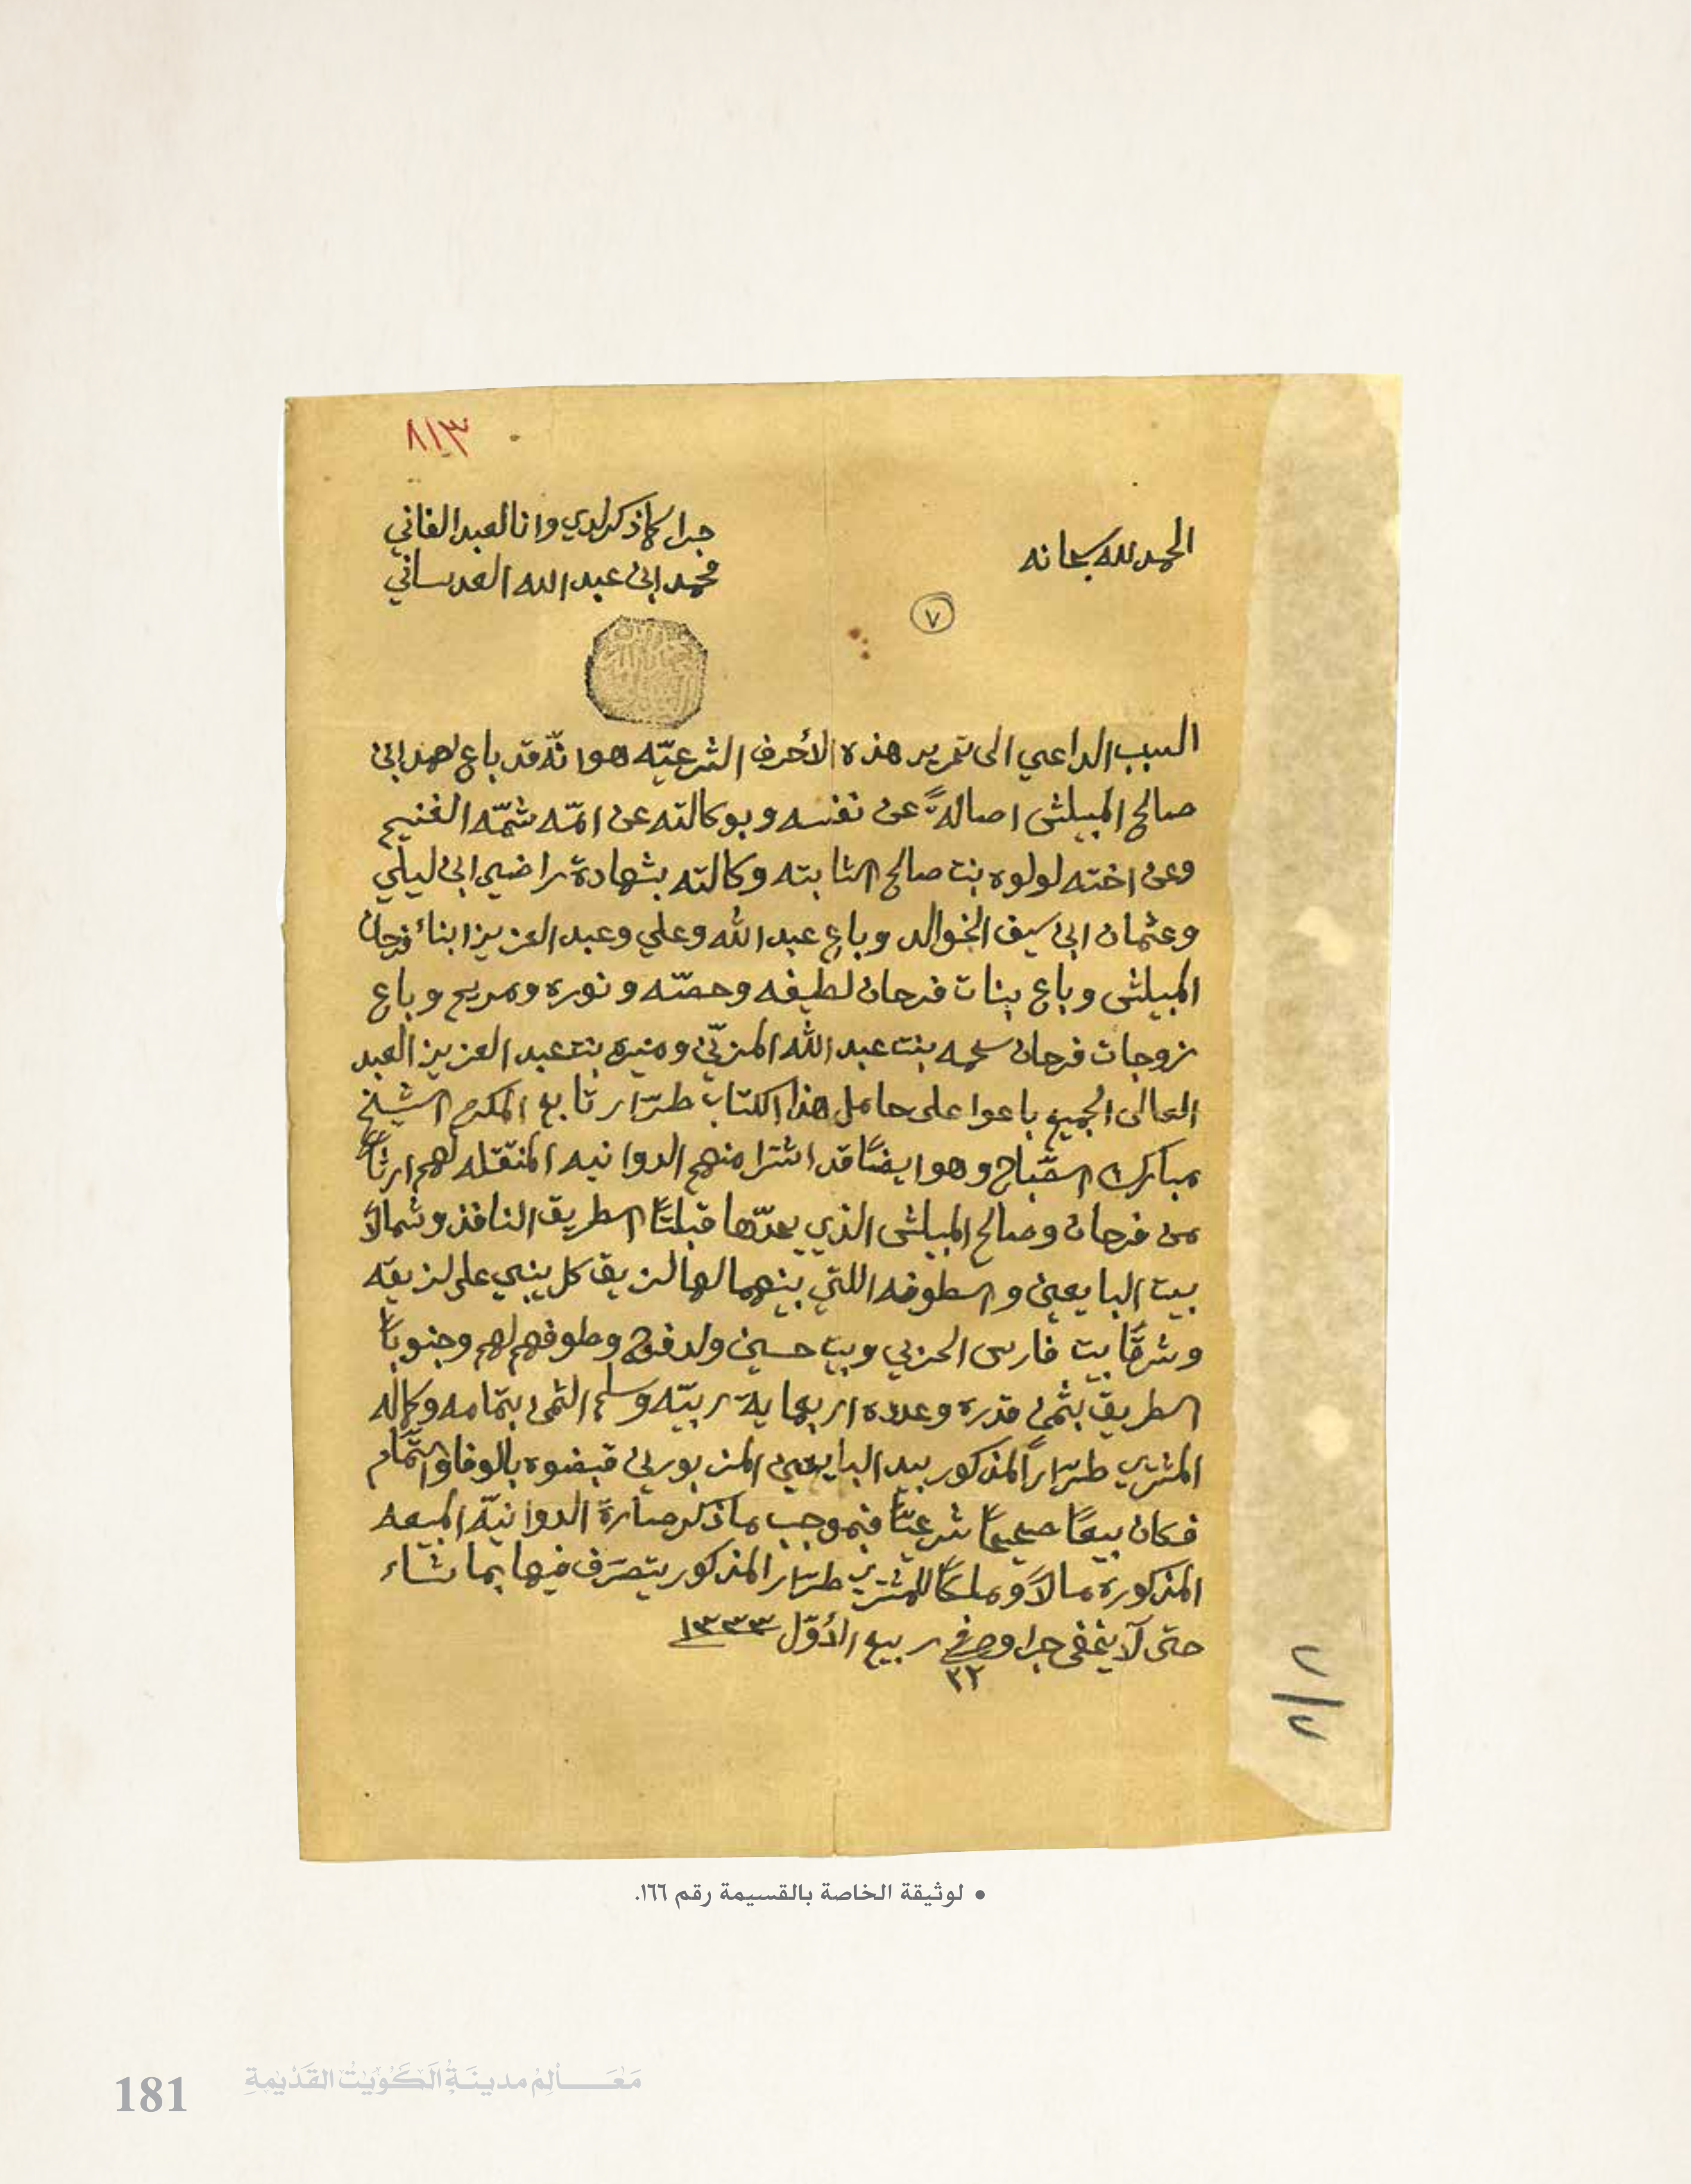 ٨١٣
الحمد لله سبحانه
جرا كما ذكر لدي وانا العبد الفاني
محمد ابن عبد الله العدساني
٧
السبب الداعي الى تحرير هذه الأحرف الشرعيّه هو انّه قد باع حمد ابن
صالح المبيلش اصالةً عن نفسه وبوكالته عن امّه شمّه الغنيم
وعن اخته لولوه بنت صالح الثابته وكالته بشهادة راضي ابن ليلي
وعثمان ابن سيف الخوالد وباع عبد الله وعلي وعبد العزيز ابناء فرحان
المبيلش وباع بنات فرحان لطيفه وحصّه ونوره ومريم وباع
زوجات فرحان سلمه بنت عبد الله المزيّن ومنيره بنت عبد العزيز العبد
العالى الجميع باعوا على حامل هذا الكتاب طرّار تابع المكرم الشيخ
مبارك الصّباح وهو ايضًا قد اشترا منهم الدوانيه المنتقله لهم ارثًا
من فرحان وصالح المبيلش الذي يحدّها قبلتًا الطريق النافذ وشمالاً
بيت البايعين والطوفه اللتي بينهما لها لزيق كل يبني على لزيقه
وشرقًا بيت فارس الحزبي وبيت حسين ولد فرج وطوفهم لهم وجنوبًا
الطريق بثمن قدره وعدده اربعماية ربيّه وسلم الثمن بتمامه وكماله
المشتري طرّاراً المذكور بيد البايعين المزبورين قبضوه بالوفا والتّمام
فكان بيعًا صحيحًا شرعيًّا فبموجب ما ذكر صارة الدوانيّة المبيعه
المذكورة مالاً وملكًا للمشتري طرّار المذكور يتصرّف فيها بما شاء
حتى لا يخفى جرا وصح في ٢٢ ربيع الأوّل ١٣٣٣
٢/٢
• لوثيقة الخاصة بالقسيمة رقم ١٦٦.
181 مَعَـالِمْ مدينَةُ الكُوَيْتْ القَدْيمةِ